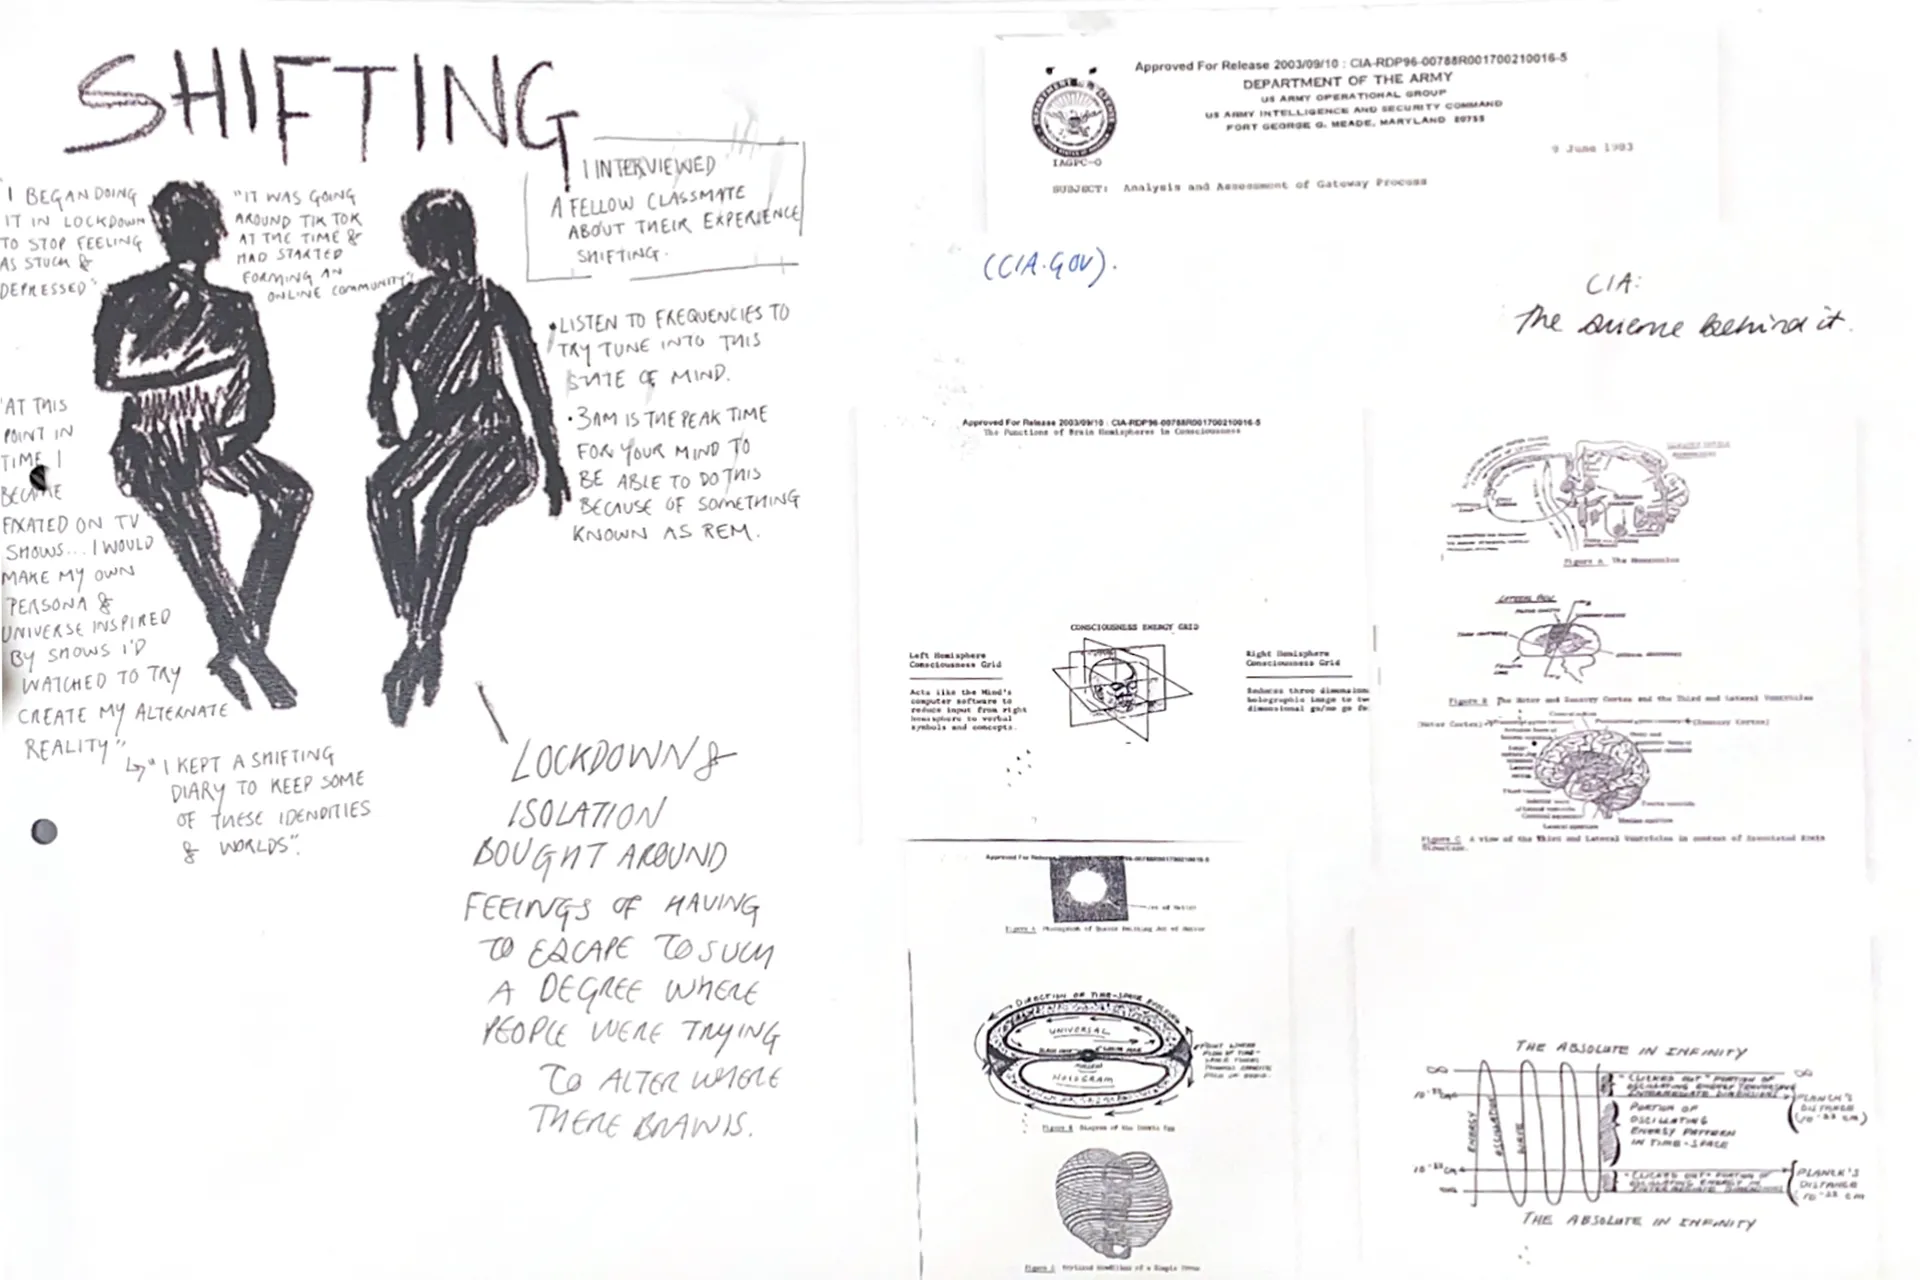 SHIFTING
"I BEGAN DOING
IT IN LOCKDOWN
TO STOP FEELING
AS STUCK &
DEPRESSED"
"IT WAS GOING
AROUND TIK TOK
AT THE TIME &
HAD STARTED
FORMING AN
ONLINE COMMUNITY".
I INTERVIEWED
A FELLOW CLASSMATE
ABOUT THEIR EXPERIENCE
SHIFTING.
• LISTEN TO FREQUENCIES TO
TRY TUNE INTO THIS
STATE OF MIND.
• 3AM IS THE PEAK TIME
FOR YOUR MIND TO
BE ABLE TO DO THIS
BECAUSE OF SOMETHING
KNOWN AS REM.
"AT THIS
POINT IN
TIME I
BECAME
FIXATED ON TV
SHOWS... I WOULD
MAKE MY OWN
PERSONA &
UNIVERSE INSPIRED
BY SHOWS I'D
WATCHED TO TRY
CREATE MY ALTERNATE
REALITY"
"I KEPT A SHIFTING
DIARY TO KEEP SOME
OF THESE IDENDITIES
& WORLDS".
LOCKDOWN &
ISOLATION
BOUGHT AROUND
FEELINGS OF HAVING
TO ESCAPE TO SUCH
A DEGREE WHERE
PEOPLE WERE TRYING
TO ALTER WHERE
THERE BRAWIS.
Approved For Release 2003/09/10 : CIA-RDP96-00788R001700210016-5
DEPARTMENT OF THE ARMY
US ARMY OPERATIONAL GROUP
US ARMY INTELLIGENCE AND SECURITY COMMAND
FORT GEORGE G. MEADE, MARYLAND 20755
IAGPC-O
9 June 1983
SUBJECT: Analysis and Assessment of Gateway Process
(CIA.GOV).
CIA:
The science behind it.
Approved For Release 2003/09/10 : CIA-RDP96-00788R001700210016-5
The Functions of Brain Hemispheres in Consciousness
CONSCIOUSNESS ENERGY GRID
Left Hemisphere
Consciousness Grid
Acts like the Mind's
computer software to
reduce input from right
hemisphere to verbal
symbols and concepts.
Right Hemisphere
Consciousness Grid
Reduces three dimension
holographic image to tw
dimensional
Figure A The Homunculus
LATERAL VIEW
Figure B The Motor and Sensory Cortex and the Third and Lateral Ventricles
(Motor Cortex)
(Sensory Cortex)
Figure C A view of the Third and Lateral Ventricles in context of Associated Brain
Structure.
Approved For Release
DIRECTION OF TIME-SPACE
UNIVERSAL
HOLOGRAM
THE ABSOLUTE IN INFINITY
∞
"CLICKED OUT" PORTION OF
OSCILLATING ENERGY
INTERMEDIATE DIMENSIONS
PLANCK'S
DISTANCE
(10⁻³³ cm)
ENERGY
OSCILLATION
WAVE
PORTION OF
OSCILLATING
ENERGY PATTERN
IN TIME-SPACE
"CLICKED OUT" PORTION OF
OSCILLATING ENERGY IN
INTERMEDIATE DIMENSIONS
PLANCK'S
DISTANCE
10⁻³³ cm
THE ABSOLUTE IN INFINITY